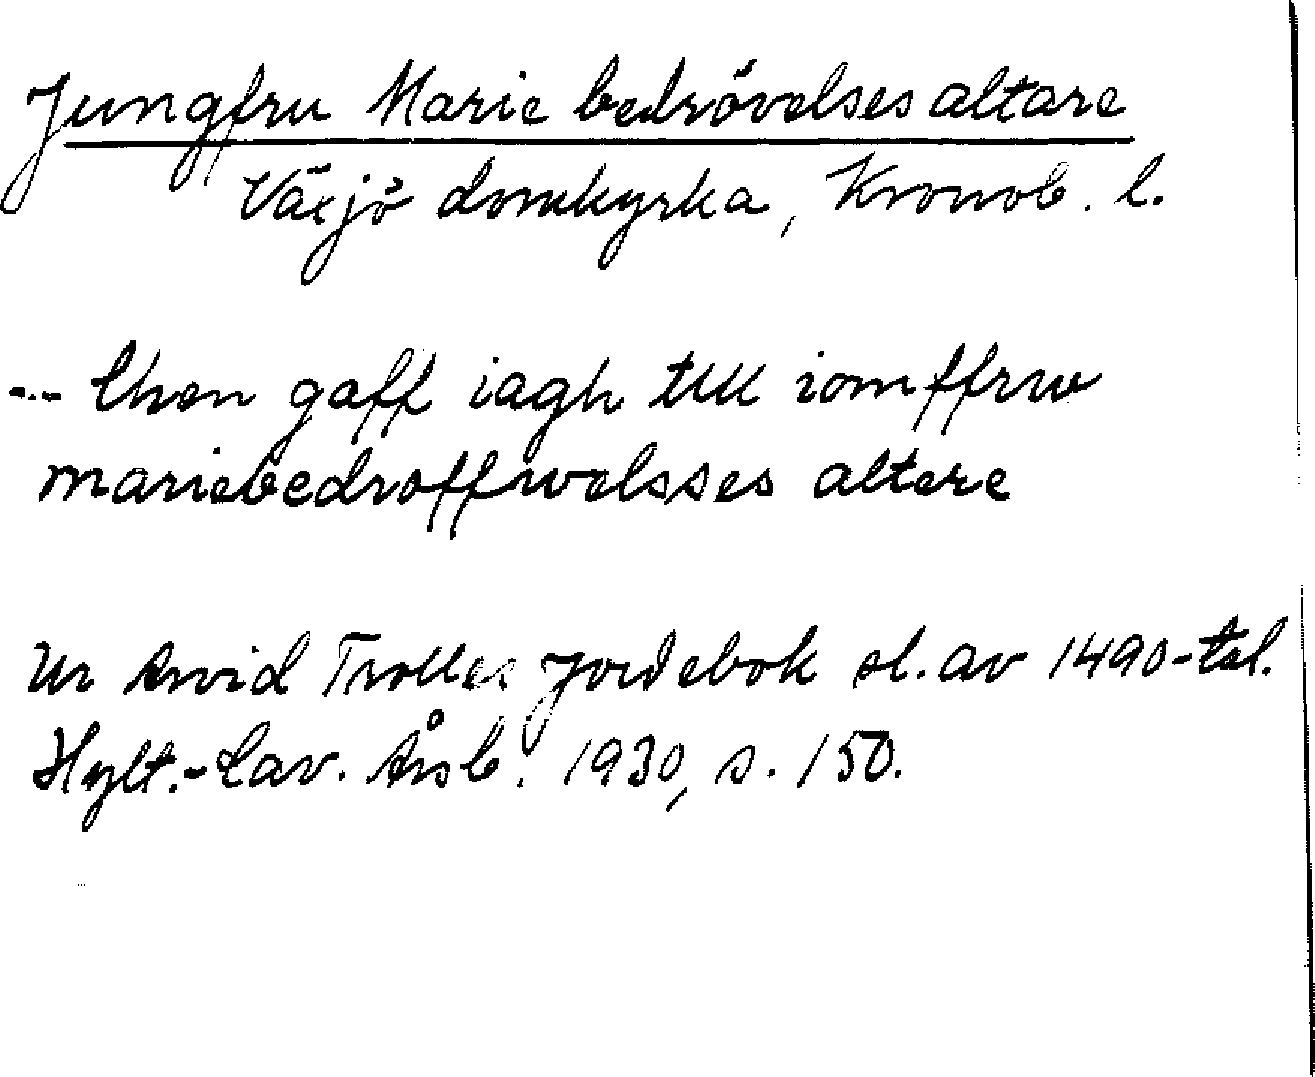 Jungfru Marie bedrövelses altare
Växjö domkyrka, Kronob. l.
... then gaff iagh till iomffrw
mariebedroffwelsses altere
Ur Arvid Trolles Jordebok sl. av 1490-tal.
Hylt.-Cav. Årsb. 1930, s. 150.